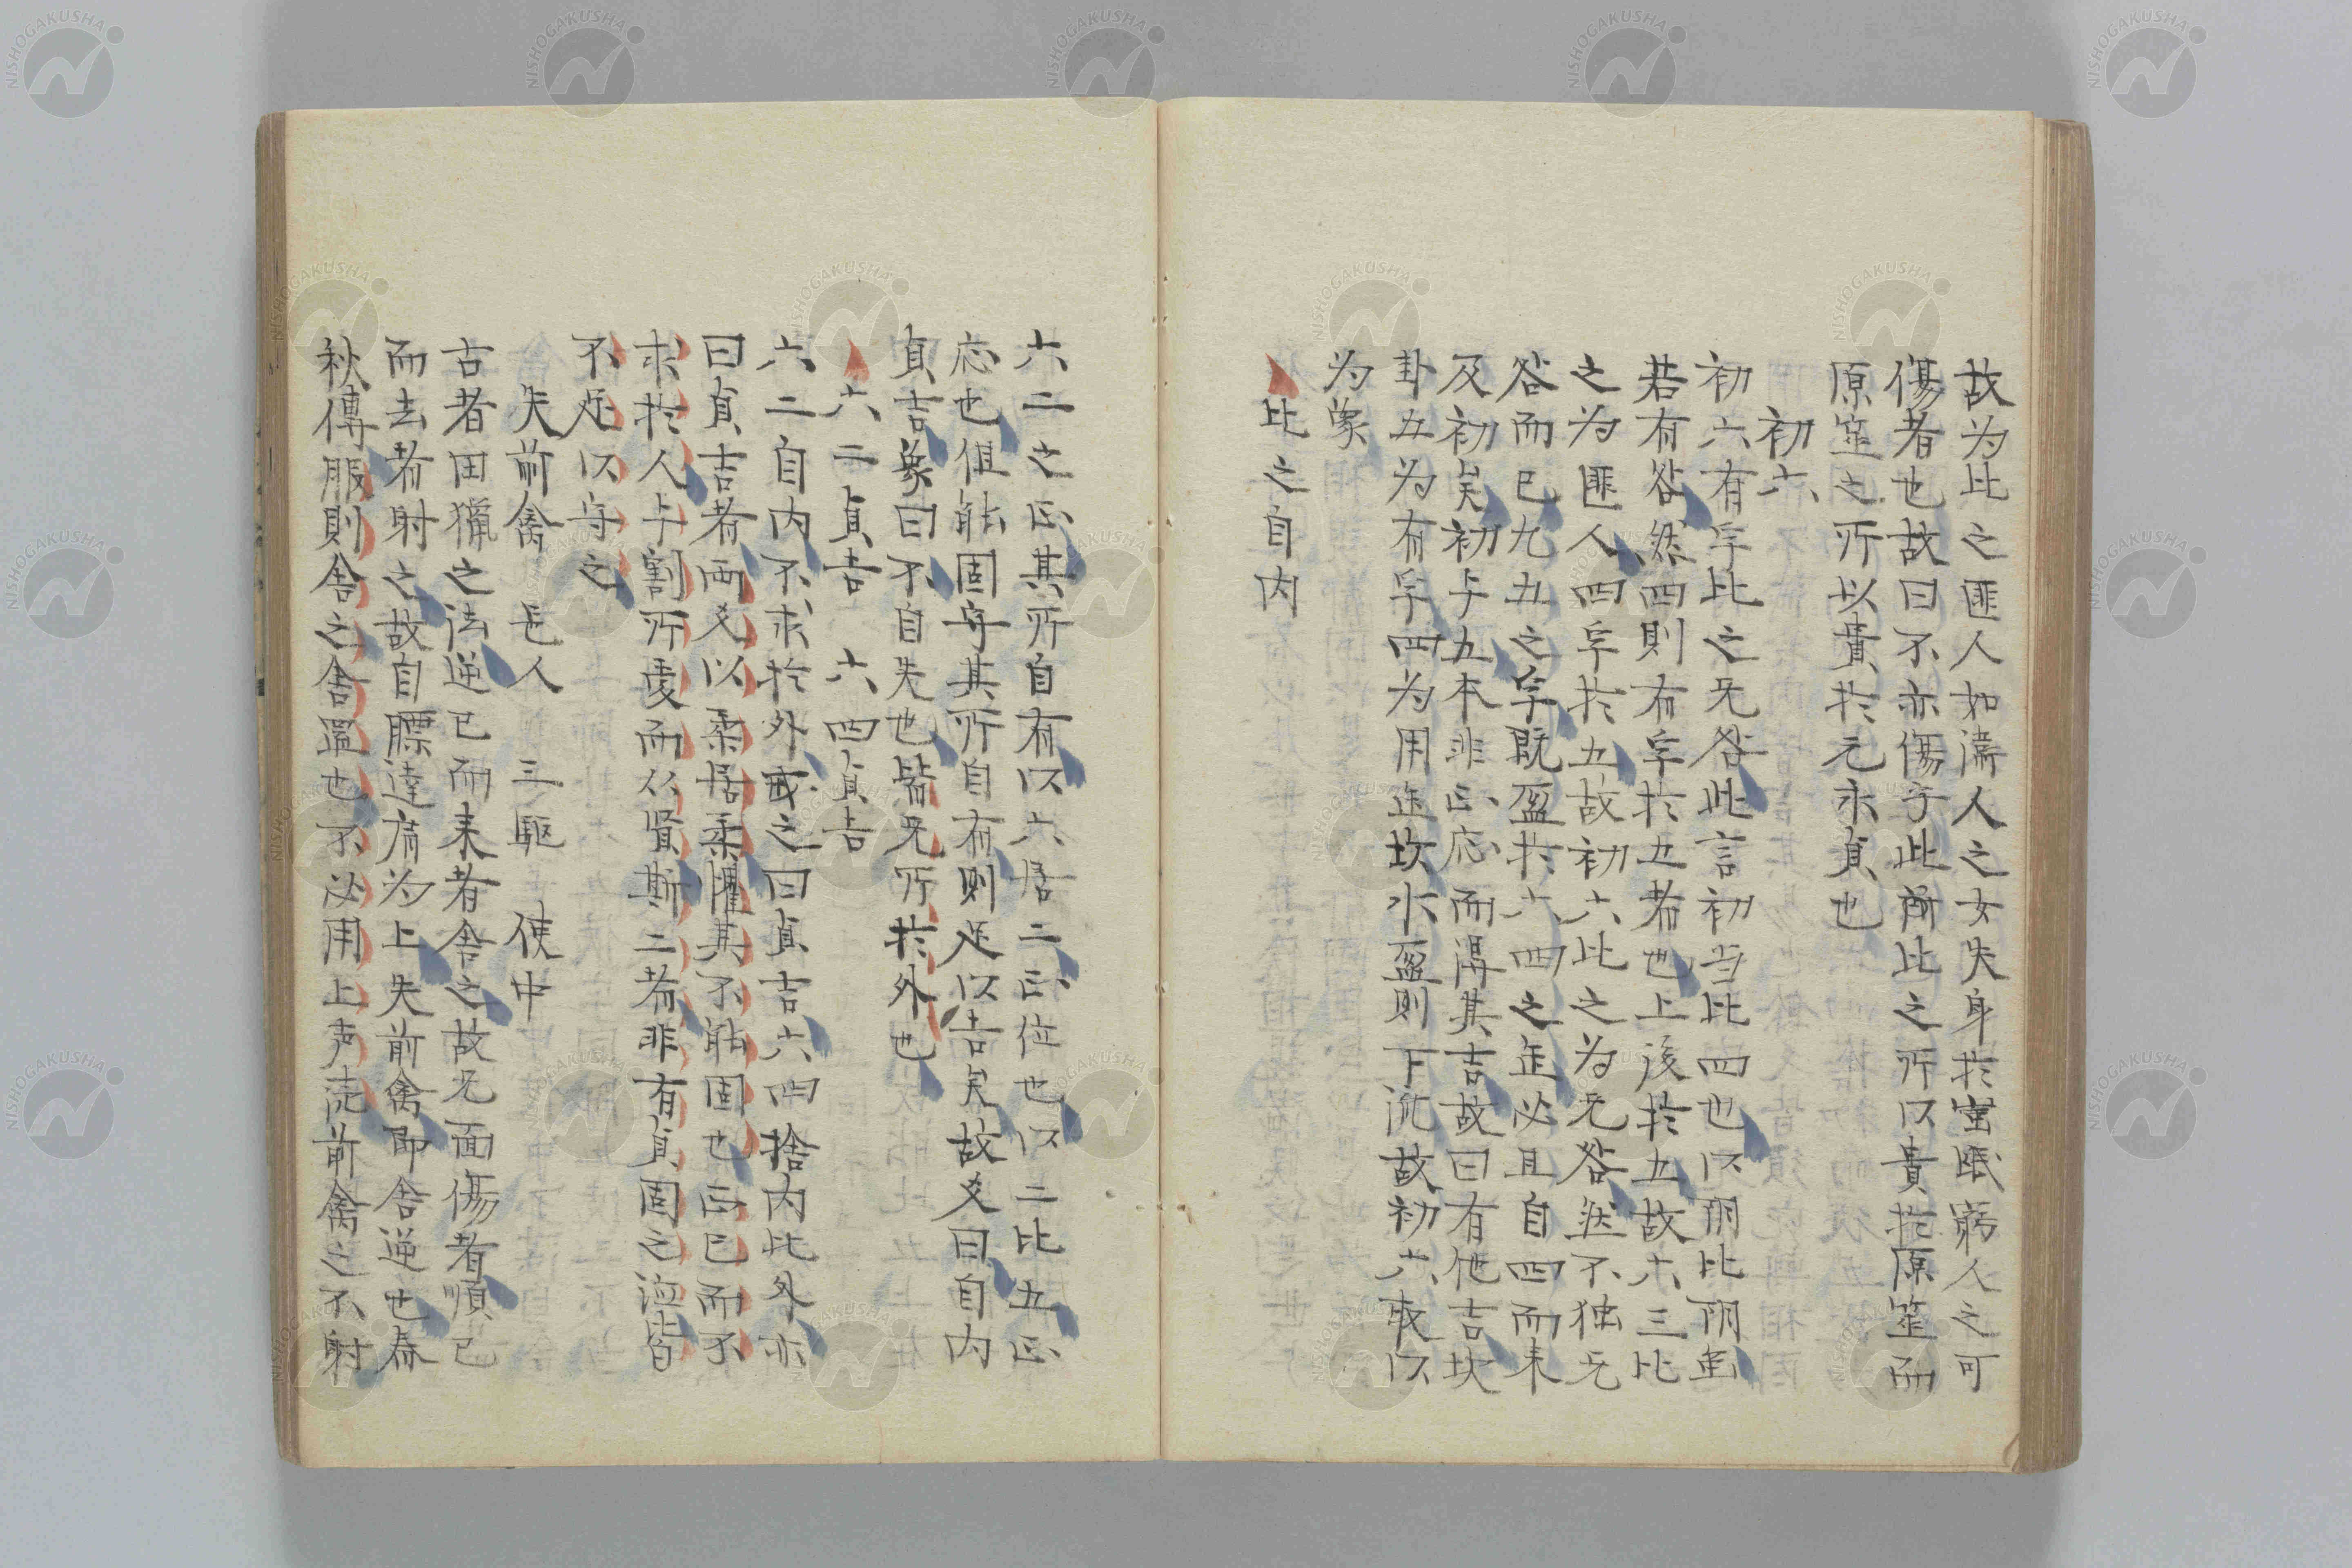 故为比之匪人如濤人之女失身於蚩氓窮人之可
傷者也故曰不亦傷乎此爾比之所以貴於原筮而
原筮之所以貴於元永貞也
初六
初六有孚比之无咎此言初当比四也以阴比阴宜
若有咎然四則有孚於五者也上後於五故六三比
之为匪人四孚於五故初六比之为无咎然不独无
咎而已九五之孚既盈於六四之缶必且自四而来
及初矣初与五本非正応而得其吉故曰有他吉坎
卦五为有孚四为用缶坎水盈則下流故初六取以
为象
比之自内
六二之正其所自有以六居二正位也以二比五正
応也但能固守其所自有則足以吉矣故爻曰自内
貞吉象曰不自失也皆无所於外也
六二貞吉 六四貞吉
六二自内不求於外戒之曰貞吉六四捨内比外亦
曰貞吉者两爻以柔居柔懼其不能固也正已而不
求於人与割所愛而从賢斯二者非有貞固之 皆
不足以守之
失前禽 邑人 三駆 使中
古者田獵之法逆已而来者舍之故无面傷者順已
而去者射之故自膘達 为上失前禽即舍逆也春
秋傳服則舍之舍還也不必用上声读前禽之不射